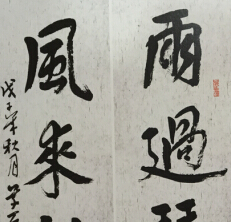 雨過
風來
戊子年秋月